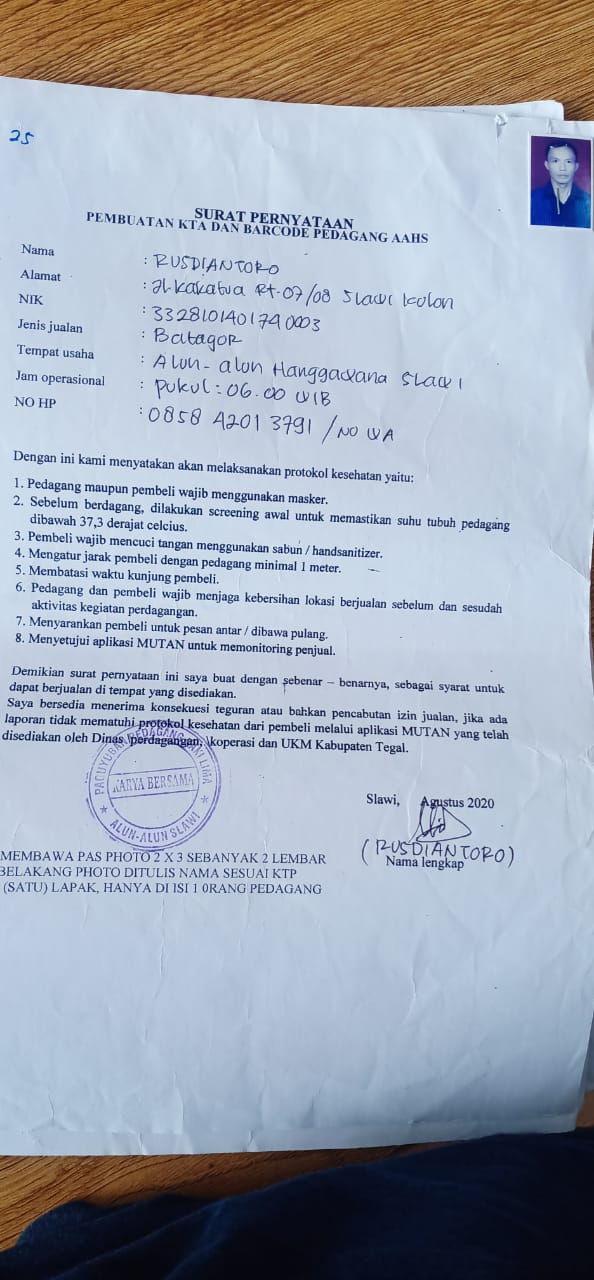 25
SURAT PERNYATAAN
PEMBUATAN KTA DAN BARCODE PEDAGANG AAHS
Nama : RUSDIANTORO
Alamat : Jl. Kakatua Rt. 07/08 Slawi Kulon
NIK : 3328101401740003
Jenis jualan : Batagor
Tempat usaha : Alun-alun Hanggawana Slawi
Jam operasional : pukul : 06.00 WIB
NO HP : 0858 4201 3791 / NO WA
Dengan ini kami menyatakan akan melaksanakan protokol kesehatan yaitu:
1. Pedagang maupun pembeli wajib menggunakan masker.
2. Sebelum berdagang, dilakukan screening awal untuk memastikan suhu tubuh pedagang
dibawah 37,3 derajat celcius.
3. Pembeli wajib mencuci tangan menggunakan sabun / handsanitizer.
4. Mengatur jarak pembeli dengan pedagang minimal 1 meter.
5. Membatasi waktu kunjung pembeli.
6. Pedagang dan pembeli wajib menjaga kebersihan lokasi berjualan sebelum dan sesudah
aktivitas kegiatan perdagangan.
7. Menyarankan pembeli untuk pesan antar / dibawa pulang.
8. Menyetujui aplikasi MUTAN untuk memonitoring penjual.
Demikian surat pernyataan ini saya buat dengan sebenar – benarnya, sebagai syarat untuk
dapat berjualan di tempat yang disediakan.
Saya bersedia menerima konsekuesi teguran atau bahkan pencabutan izin jualan, jika ada
laporan tidak mematuhi protokol kesehatan dari pembeli melalui aplikasi MUTAN yang telah
disediakan oleh Dinas perdagangan, koperasi dan UKM Kabupaten Tegal.
PAGUYUBAN PEDAGANG KAKI LIMA
KARYA BERSAMA
ALUN-ALUN SLAWI
Slawi, Agustus 2020
(RUSDIANTORO)
Nama lengkap
MEMBAWA PAS PHOTO 2 X 3 SEBANYAK 2 LEMBAR
BELAKANG PHOTO DITULIS NAMA SESUAI KTP
(SATU) LAPAK, HANYA DI ISI 1 0RANG PEDAGANG